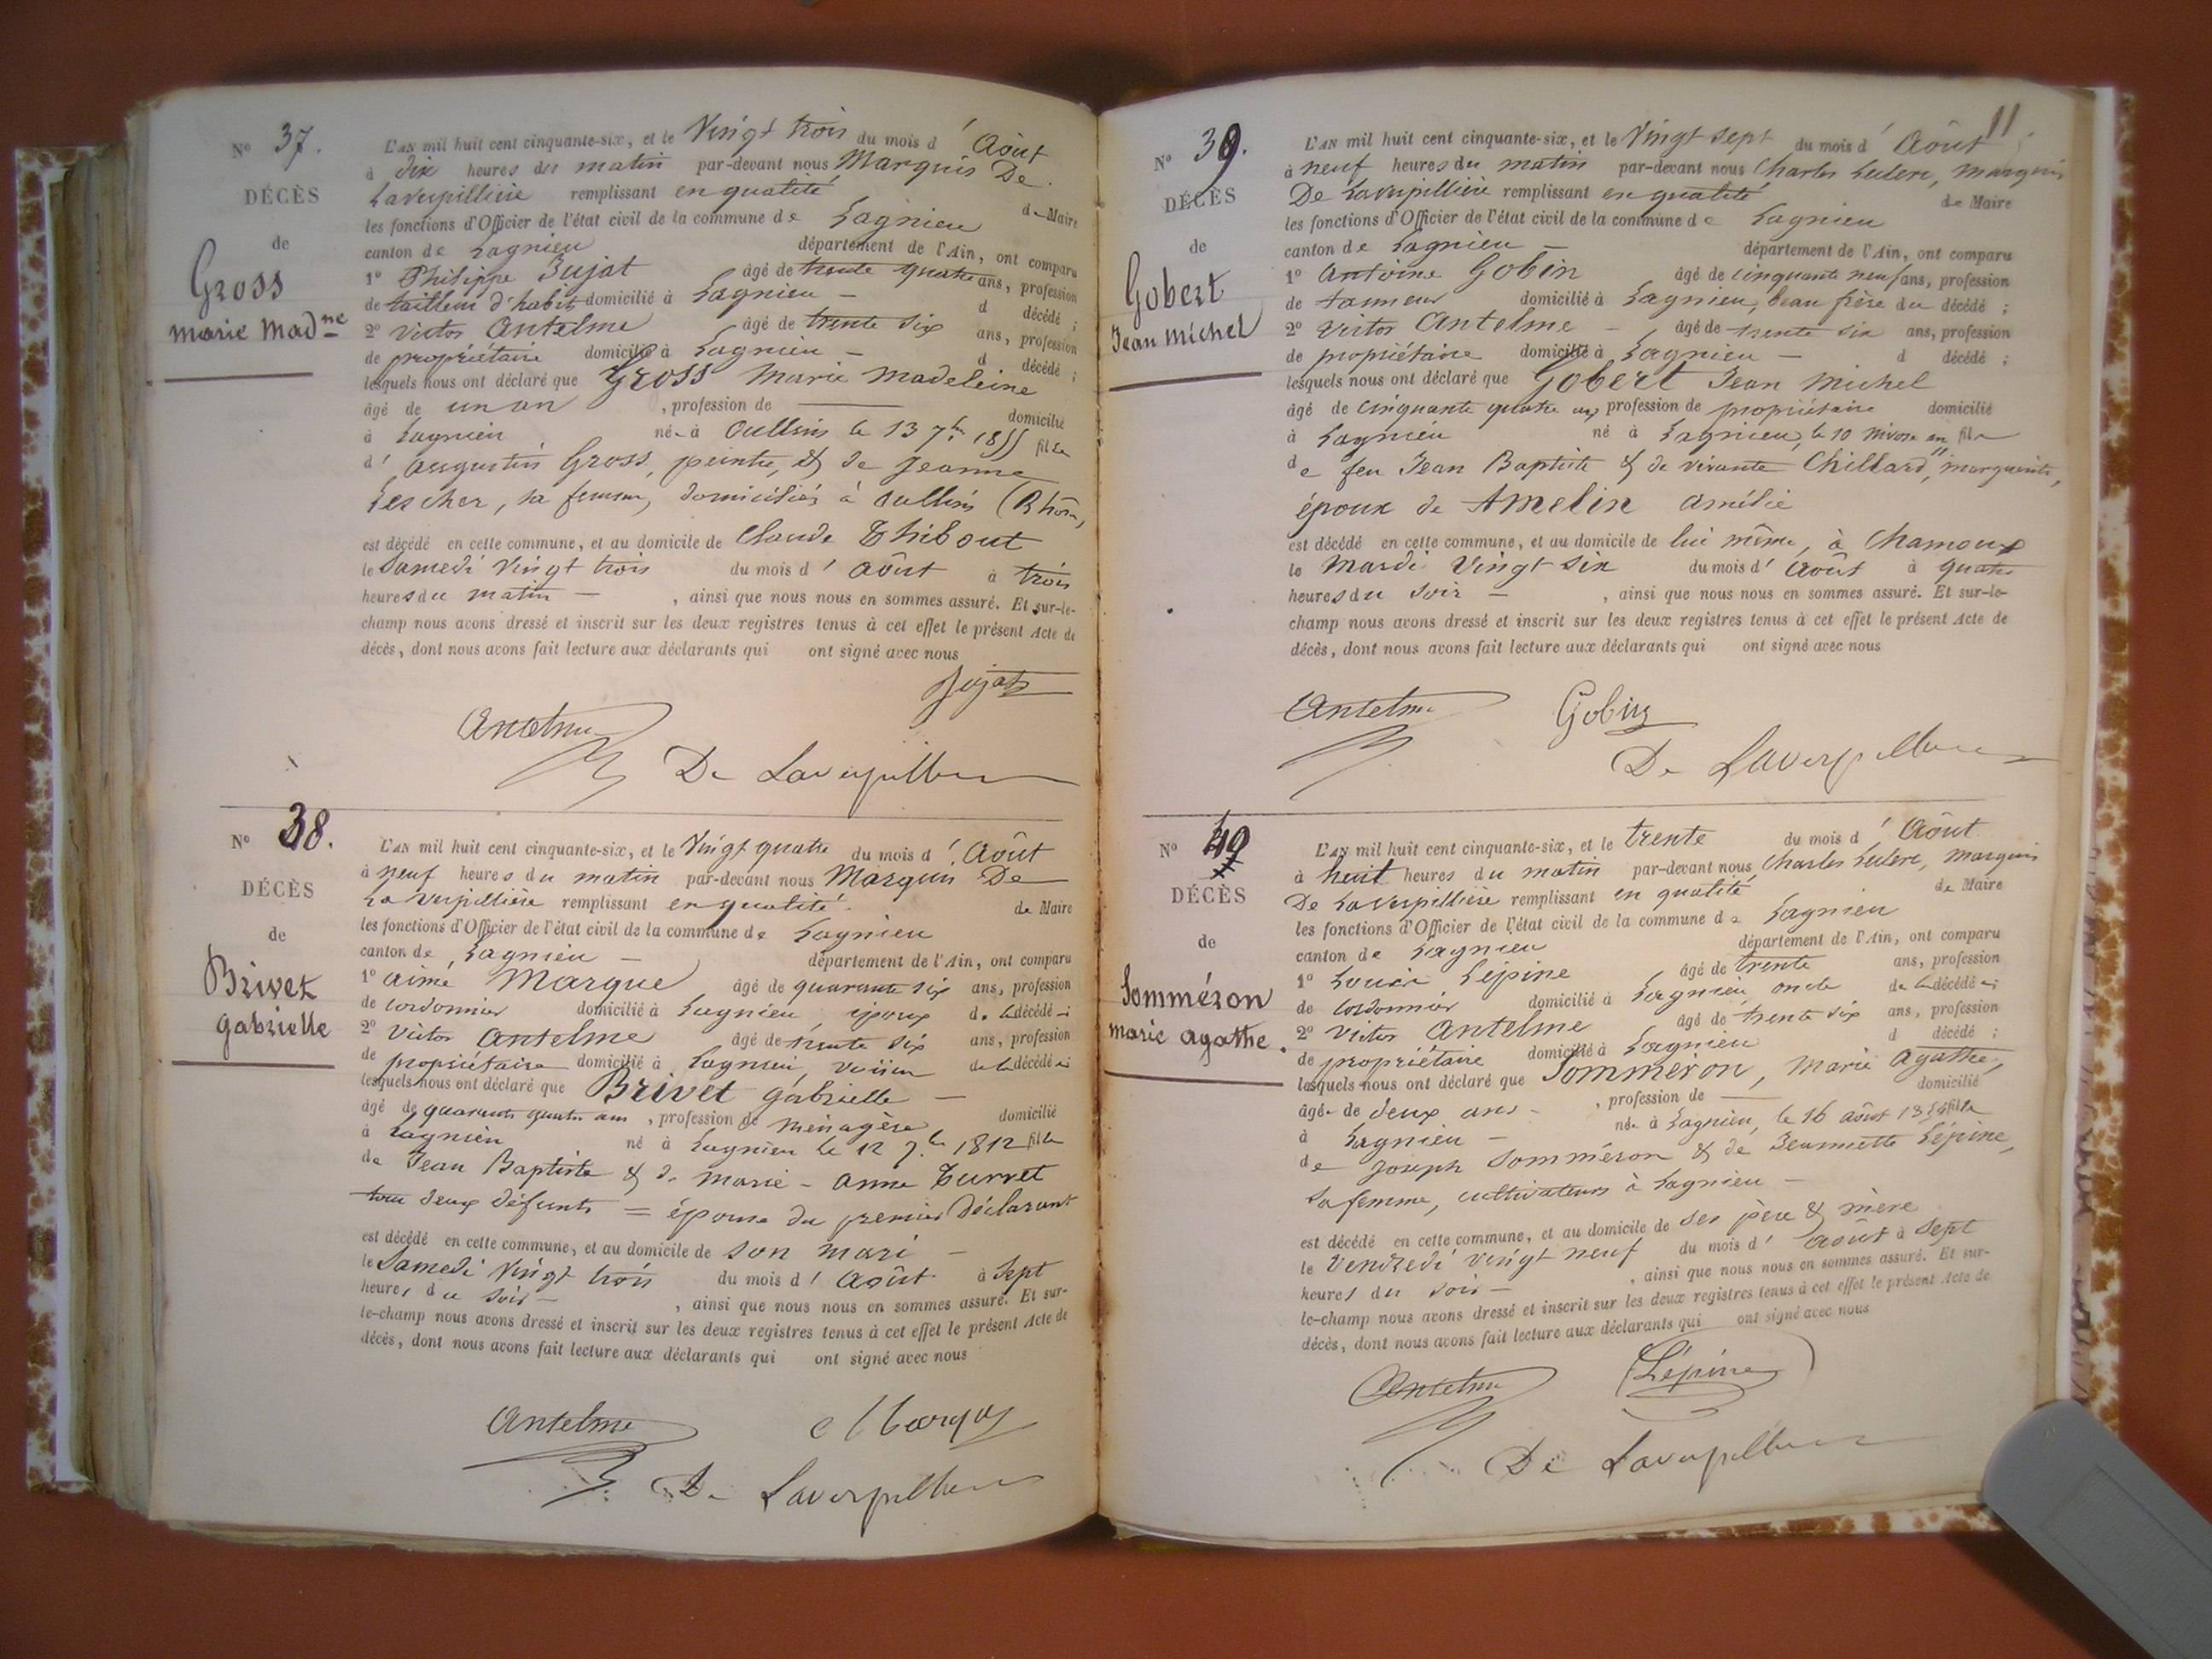 N° 37.
DÉCÈS
de
Gross
marie Madne
L'AN mil huit cent cinquante-six, et le Vingt trois du mois d' Août
à dix heures du matin par-devant nous Marquis De
Laverpillière remplissant en qualité de Maire
les fonctions d'Officier de l'état civil de la commune de Lagnieu
canton de Lagnieu département de l'Ain, ont comparu
1° Philippe Jujat âgé de trente quatre ans, profession
de tailleur d'habit domicilié à Lagnieu — d décédé ;
2° Victor Antelme âgé de trente six ans, profession
de propriétaire domicilié à Lagnieu — d décédé ;
lesquels nous ont déclaré que Gross Marie Madeleine
âgé de un an , profession de — domicilié
à Lagnieu née à Oullins le 13 7bre 1855 fille
d' Augustin Gross, peintre, & de Jeanne
Lescher, sa femme, domiciliés à Oullins (Rhône)
est décédé en cette commune, et au domicile de Claude Thibout
le Samedi Vingt trois du mois d' Août à trois
heures du matin — , ainsi que nous nous en sommes assuré. Et sur-le-
champ nous avons dressé et inscrit sur les deux registres tenus à cet effet le présent Acte de
décès, dont nous avons fait lecture aux déclarants qui ont signé avec nous
Jujat
Antelme
De Laverpilliere
N° 38.
DÉCÈS
de
Brivet
gabrielle
L'AN mil huit cent cinquante-six, et le Vingt quatre du mois d' Août
à neuf heures du matin par-devant nous Marquis De
Laverpillière remplissant en qualité de Maire
les fonctions d'Officier de l'état civil de la commune de Lagnieu
canton de Lagnieu — département de l'Ain, ont comparu
1° aimé Margue âgé de quarante six ans, profession
de cordonnier domicilié à Lagnieu, époux de la décédée ;
2° Victor Antelme âgé de trente six ans, profession
de propriétaire domicilié à Lagnieu, voisin de la décédée ;
lesquels nous ont déclaré que Brivet gabrielle —
âgé de quarante quatre ans , profession de Ménagère domicilié
à Lagnieu né à Lagnieu le 12 7bre 1812 fille
de Jean Baptiste & de marie - anne Turret
tous deux défunts = épouse du premier Déclarant
est décédé en cette commune, et au domicile de son mari —
le Samedi Vingt trois du mois d' Août à Sept
heures du soir — , ainsi que nous nous en sommes assuré. Et sur-
le-champ nous avons dressé et inscrit sur les deux registres tenus à cet effet le présent Acte de
décès, dont nous avons fait lecture aux déclarants qui ont signé avec nous
Antelme
De Laverpilliere
11
N° 39.
DÉCÈS
de
Gobert
Jean Michel
L'AN mil huit cent cinquante-six, et le Vingt sept du mois d' Août
à neuf heures du matin par-devant nous Charles Leclerc, marquis
De Laverpillière remplissant en qualité de Maire
les fonctions d'Officier de l'état civil de la commune de Lagnieu
canton de Lagnieu — département de l'Ain, ont comparu
1° Antoine Gobin âgé de cinquante neuf ans, profession
de tanneur domicilié à Lagnieu, beau frère du décédé ;
2° Victor Antelme — âgé de trente six ans, profession
de propriétaire domicilié à Lagnieu — d décédé ;
lesquels nous ont déclaré que Gobert Jean Michel
âgé de cinquante quatre ans profession de propriétaire domicilié
à Lagnieu né à Lagnieu, le 10 nivose an fils
de feu Jean Baptiste & de vivante Chillard, marguerite,
époux de Amelin amélie
est décédé en cette commune, et au domicile de lui même, à Chamoux
le Mardi Vingt six du mois d' Août à quatre
heures du soir — , ainsi que nous nous en sommes assuré. Et sur-le-
champ nous avons dressé et inscrit sur les deux registres tenus à cet effet le présent Acte de
décès, dont nous avons fait lecture aux déclarants qui ont signé avec nous
Antelme Gobin
De Laverpilliere
N° 40
DÉCÈS
de
Somméron
marie agathe.
L'AN mil huit cent cinquante-six, et le trente du mois d' Août
à huit heures du matin par-devant nous Charles Leclerc, Marquis
De Laverpillière remplissant en qualité de Maire
les fonctions d'Officier de l'état civil de la commune de Lagnieu
canton de Lagnieu département de l'Ain, ont comparu
1° Louis Lépine âgé de trente ans, profession
de cordonnier domicilié à Lagnieu oncle de la décédée ;
2° Victor Antelme âgé de trente six ans, profession
de propriétaire domicilié à Lagnieu d décédé ;
lesquels nous ont déclaré que Somméron, Marie Agathe,
âgée de deux ans — , profession de — domicilié
à Lagnieu — née à Lagnieu, le 16 août 1854 fille
de Joseph Somméron & de Jeannette Lépine,
sa femme, cultivateurs à Lagnieu —
est décédé en cette commune, et au domicile de ses père & mère
le Vendredi vingt neuf du mois d' Août à Sept
heures du soir — , ainsi que nous nous en sommes assuré. Et sur-
le-champ nous avons dressé et inscrit sur les deux registres tenus à cet effet le présent Acte de
décès, dont nous avons fait lecture aux déclarants qui ont signé avec nous
Antelme Lépine
De Laverpilliere